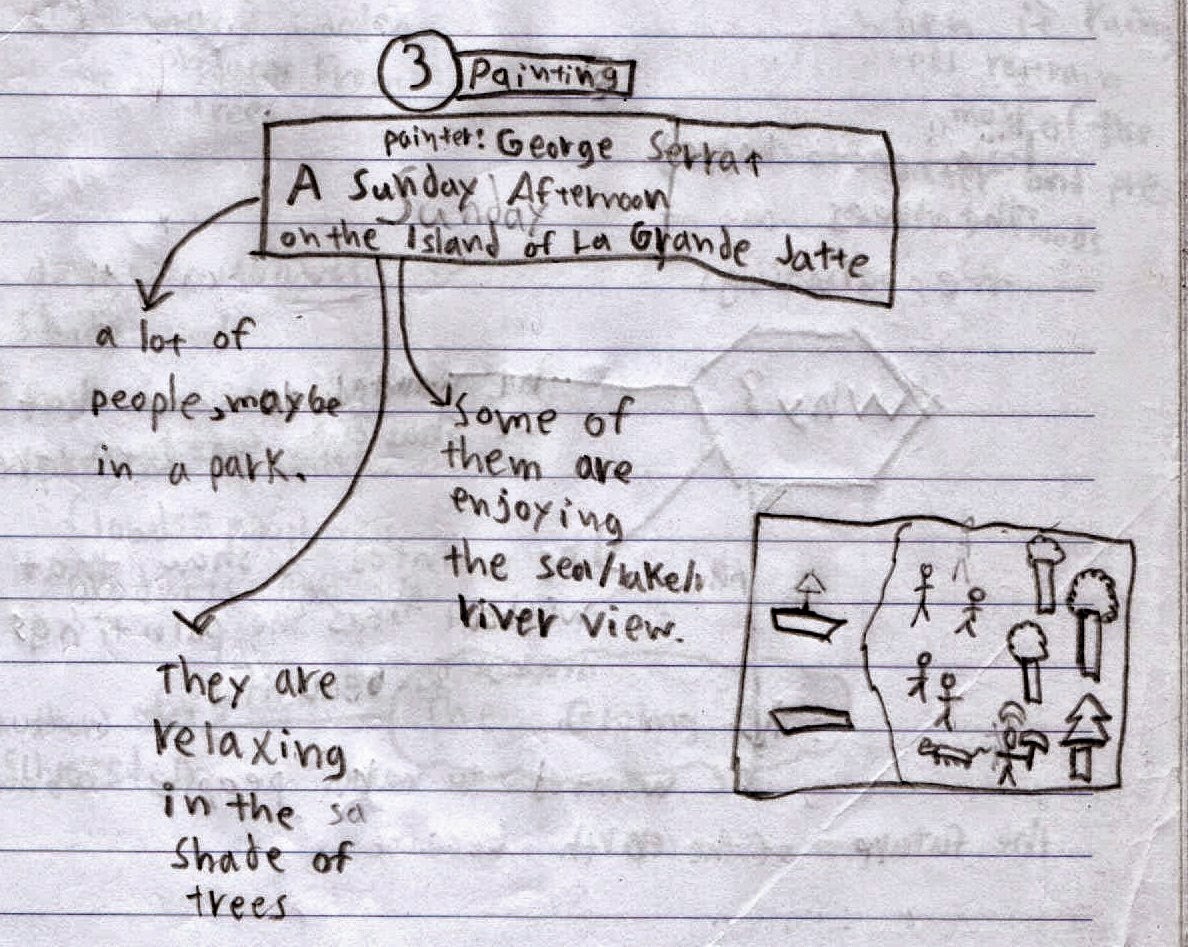 3 Painting
painter: George Serrat
A Sunday Afternoon
Sunday
on the Island of La Grande Jatte
a lot of
people, maybe
in a park.
Some of
them are
enjoying
the sea/lake/
river view.
They are
relaxing
in the sa
shade of
trees